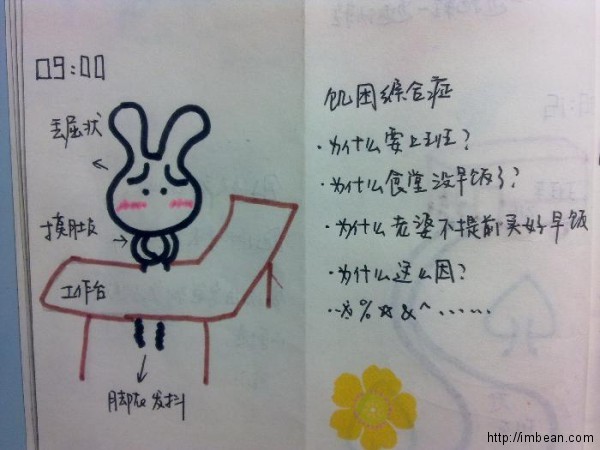 09:00
委屈状
摸肚皮
工作台
发抖
饥困综合症
·为什么要上班?
·为什么食堂没早饭了?
·为什么老婆不提前买好早饭
·为什么这么困?
·※%☆&^……
http://imbean.com